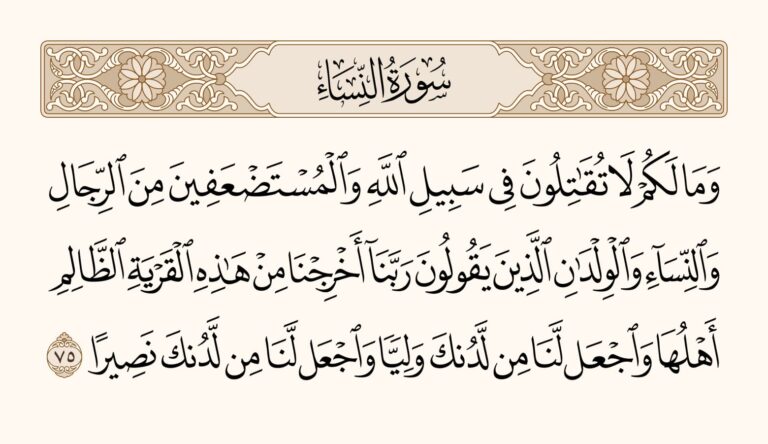 سُورَةُ النِّسَاءِ
وَمَا لَكُمۡ لَا تُقَٰتِلُونَ فِي سَبِيلِ ٱللَّهِ وَٱلۡمُسۡتَضۡعَفِينَ مِنَ ٱلرِّجَالِ
وَٱلنِّسَآءِ وَٱلۡوِلۡدَٰنِ ٱلَّذِينَ يَقُولُونَ رَبَّنَآ أَخۡرِجۡنَا مِنۡ هَٰذِهِ ٱلۡقَرۡيَةِ ٱلظَّالِمِ
أَهۡلُهَا وَٱجۡعَل لَّنَا مِن لَّدُنكَ وَلِيّٗا وَٱجۡعَل لَّنَا مِن لَّدُنكَ نَصِيرًا ٧٥